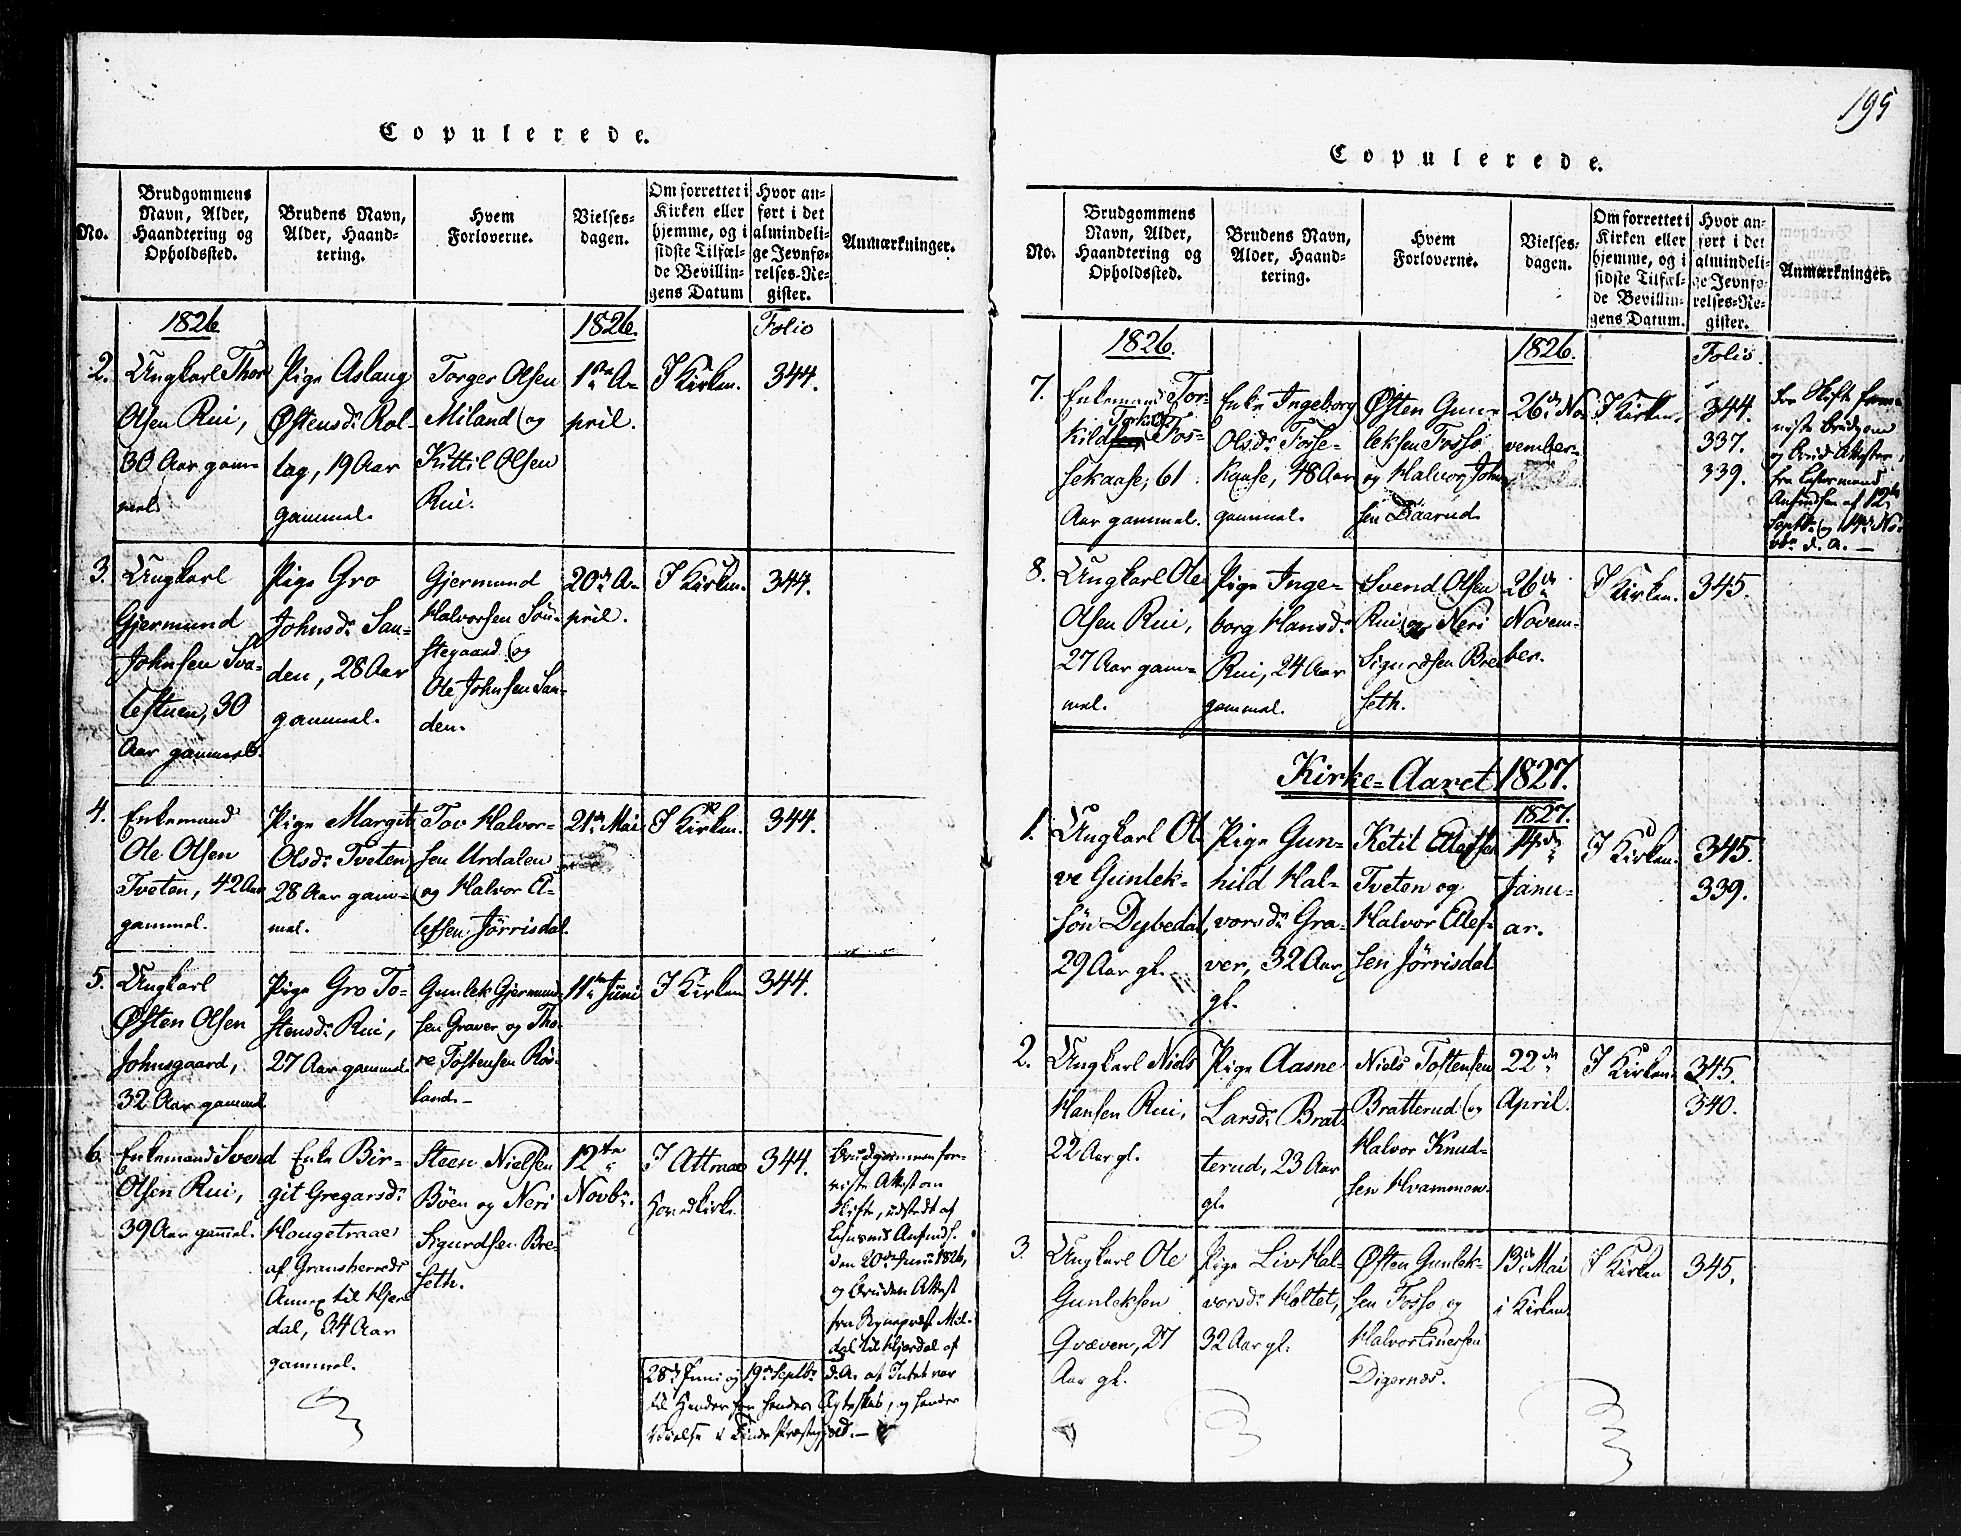 Copulerede.
No.
Brudgommens
Navn, Alder,
Haandtering og
Opholdssted.
Brudens Navn,
Alder, Haand-
tering.
Hvem
Forloverne.
Vielses-
dagen.
Om forrettet i
Kirken eller
hjemme, og i
sidste Tilfæl-
de Bevillin-
gens Datum
Hvor an-
ført i det
almindeli-
ge Jevnfø-
relses-Re-
gister.
Anmærkninger.
1826.
1826.
Folio
2.
Ungkarl Thor
Olsen Rui,
30 Aar gam-
mel.
Pige Aslaug
Østensdr. Rol-
lag, 19 Aar
gammel.
Torger Olsen
Miland og
Kittil Olsen
Rui.
1ste A-
pril.
I Kirken.
344.
3.
Ungkarl
Gjermund
Johnsen Sva-
lestuen, 30
Aar gammel.
Pige Gro
Johnsdr. San-
den, 28 Aar
gammel.
Gjermund
Halvorsen Søn-
stegaard og
Ole Johnsen San-
den.
20de A-
pril.
I Kirken.
344.
4.
Enkemand
Ole Olsen
Tveten, 42 Aar
gammel.
Pige Margit
Olsdr. Tveten
28 Aar gam-
mel.
Tov Halvor-
sen Urdalen
og Halvor El-
lefsen Jørrisdal.
21de Mai
I Kirken.
344.
5.
Ungkarl
Østen Olsen
Johnsgaard,
32 Aar gammel
Pige Gro To-
stensdr. Rui,
27 Aar gammel.
Gunlek Gjermund-
sen Graver, og Tho-
re Tostensen Røi-
land.-
11te Juni
I Kirken
344.
6.
Enkemand Svend
Olsen Rui,
39 Aar gammel.
Enke Bir-
git Gregarsdr.
Hougetraae
af Gransherreds
Annex til Hjer
dal, 34 Aar
gammel.
Steen Nielsen
Bøen og Neri
Sigurdsen Bre-
seth.
12te
Novbr.
I Attraae
Hovedkirke.
344.
Brudgommen fore-
viste Attest om
Skifte, udstedt af
Lehnsmd Anfinds.
den 20de Juni 1826,
og Bruden Attest
fra
til Hjerdal af
28de Juni og 19de Septbr. d. A. at Intet var
til Hinder for hendes Ægteskab, og hendes
Præstegjeld.-
195
Copulerede.
No.
Brudgommens
Navn, Alder,
Haandtering og
Opholdssted.
Brudens Navn,
Alder, Haand-
tering.
Hvem
Forloverne.
Vielses-
dagen.
Om forrettet i
Kirken eller
hjemme, og i
sidste Tilfæl-
de Bevillin-
gens Datum.
Hvor an-
ført i det
almindeli-
ge Jevnfø-
relses-Re-
gister.
Anmærkninger.
1826.
1826.
Folio.
7.
Enkemand Tor-
kild Fos-
sekaase, 61
Aar gammel.
Enke Ingeborg
Olsdr. Fosse-
kaase, 48 Aar
gammel.
Østen Gun-
leksen Fossø
og Halvor John-
sen Baarud.
26de No-
vember.
I Kirken.
344.
337.
339.
Om Skifte frem-
viste Brudgom
og Brud Attester
fra Lehnsmand
Anfindsen af 12te
Septbr. og 14de No-
vbr. d. A. -
8.
Ungkarl Ole
Olsen Rui,
27 Aar gam-
mel.
Pige Inge-
borg Hansdr.
Rui, 24 Aar
gammel.
Svend Olsen
Rui og Neri
Sigurdsen Bre-
seth.
26de
Novem-
ber.
I Kirken.
345.
Kirke-Aaret 1827.
1827.
1.
Ungkarl Ol-
ve Gunlek-
søn Dybedal,
29 Aar gl.
Pige Gun-
hild Hal-
vorsdr. Gra-
ver, 32 Aar
gl.
Ketil Ellefsen
Tveten og
Halvor Ellef-
sen Jørrisdal
14de
Janu-
ar.
I Kirken.
345.
339.
2.
Ungkarl Niels
Hansen Rui,
22 Aar gl.
Pige Aasne
Larsdr. Brat-
terud, 23 Aar
gl.
Niels Tostensen
Bratterud og
Halvor Knud-
sen Hvammen.
22de
April.
I Kirken.
345.
340.
3.
Ungkarl Ole
Gunleksen
Qvæven, 27
Aar gl.
Pige Liv Hal-
vorsdr. Holtet,
32 Aar gl.
Østen Gunlek-
sen Fossø og
Halvor Einersen
Digernæs.
13de Mai
i Kirken.
I Kirken
345.